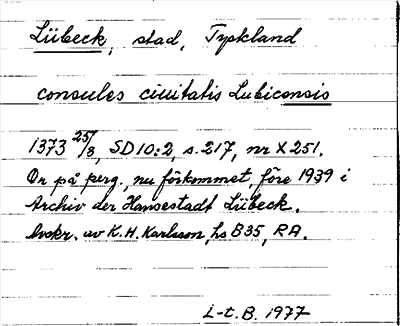 Lübeck, stad, Tyskland
consules ciuitatis Lubicensis
1373 25/3, SD 10:2, s. 217, nr X 251.
Or på perg., nu förkommet, före 1939 i
Archiv der Hansestadt Lübeck.
Avskr. av K. H. Karlsson, hs B 35, RA.
L-t. B. 1977